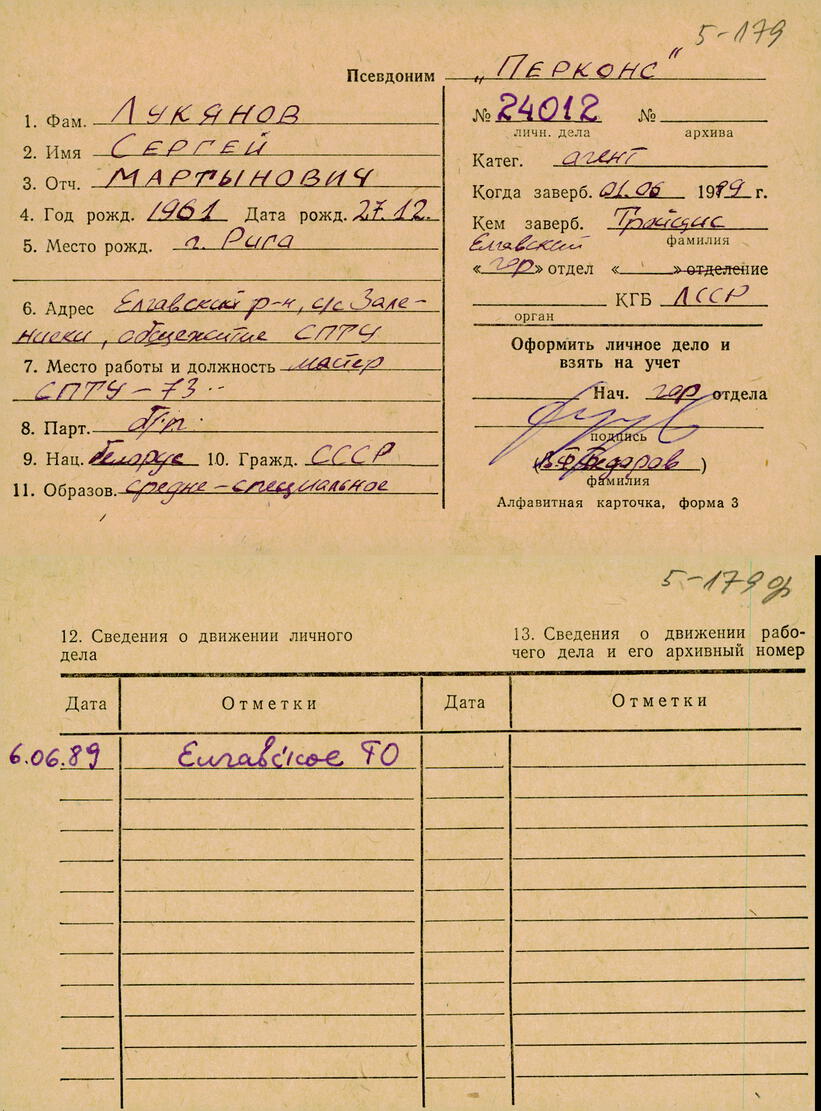 5-179
Псевдоним „Перконс“
1. Фам. Лукянов
2. Имя Сергей
3. Отч. Мартынович
4. Год рожд. 1961 Дата рожд. 27.12.
5. Место рожд. г. Рига
6. Адрес Елгавский р-н, с/с Зале-
ниеки, общежитие СПТУ
7. Место работы и должность мастер
СПТУ-73
8. Парт. б/п.
9. Нац. беларус 10. Гражд. СССР
11. Образов. средне-специальное
№ 24012 № 
личн. дела архива
Катег. агент
Когда заверб. 01.06 1989 г.
Кем заверб.
Елгавский фамилия
«гор» отдел « » отделение
КГБ ЛССР
орган
Оформить личное дело и
взять на учет
Нач. гор отдела
подпись
( )
фамилия
Алфавитная карточка, форма 3
5-179
12. Сведения о движении личного
дела
13. Сведения о движении рабо-
чего дела и его архивный номер
Дата Отметки Дата Отметки
6.06.89 Елгавское ГО